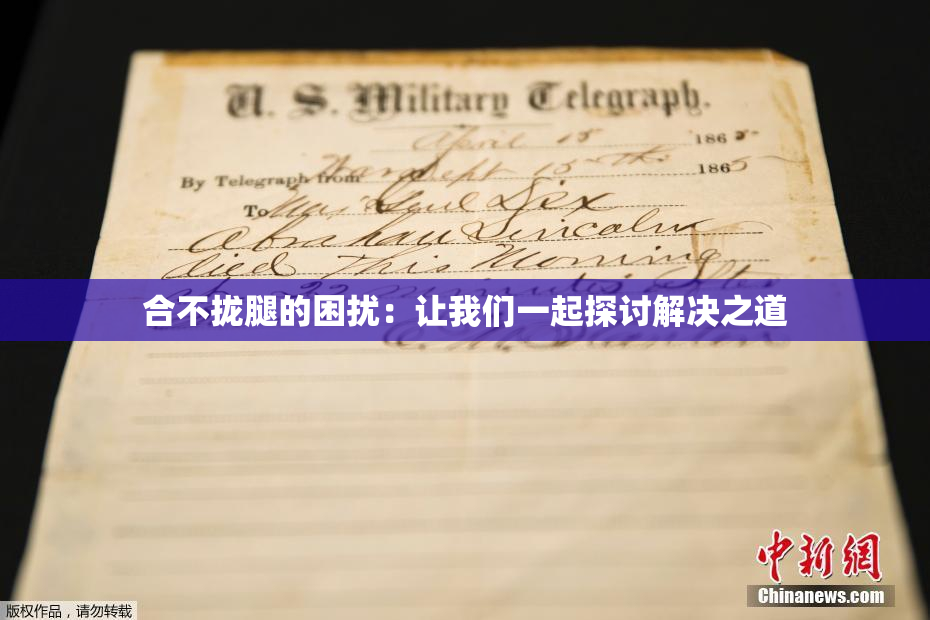 U. S. Military Telegraph.
April 15 1865
By Telegraph from War Dept 15th 1865
To Maj Genl Dix
Abraham Lincoln
died This Morning
at 22 minutes after
合不拢腿的困扰：让我们一起探讨解决之道
E. M. Stanton
中新網
Chinanews.com
版权作品，请勿转载